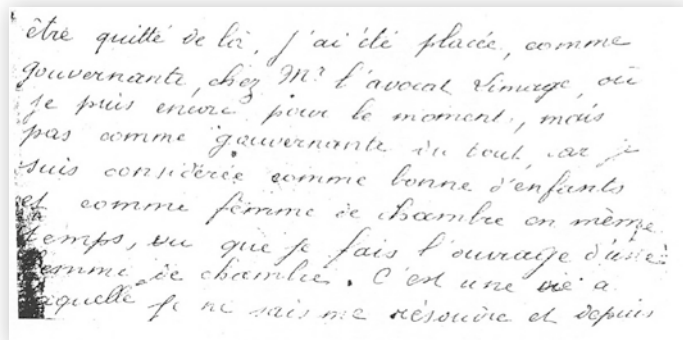 être quitté de là, j'ai été placée, comme
gouvernante, chez Mr l'avocat Limage, où
je suis encore pour le moment, mais
pas comme gouvernante du tout, car je
suis considérée comme bonne d'enfants
et comme femme de chambre en même
temps, vu que je fais l'ouvrage d'une
femme de chambre. C'est une vie a
laquelle je ne sais me résoudre et depuis